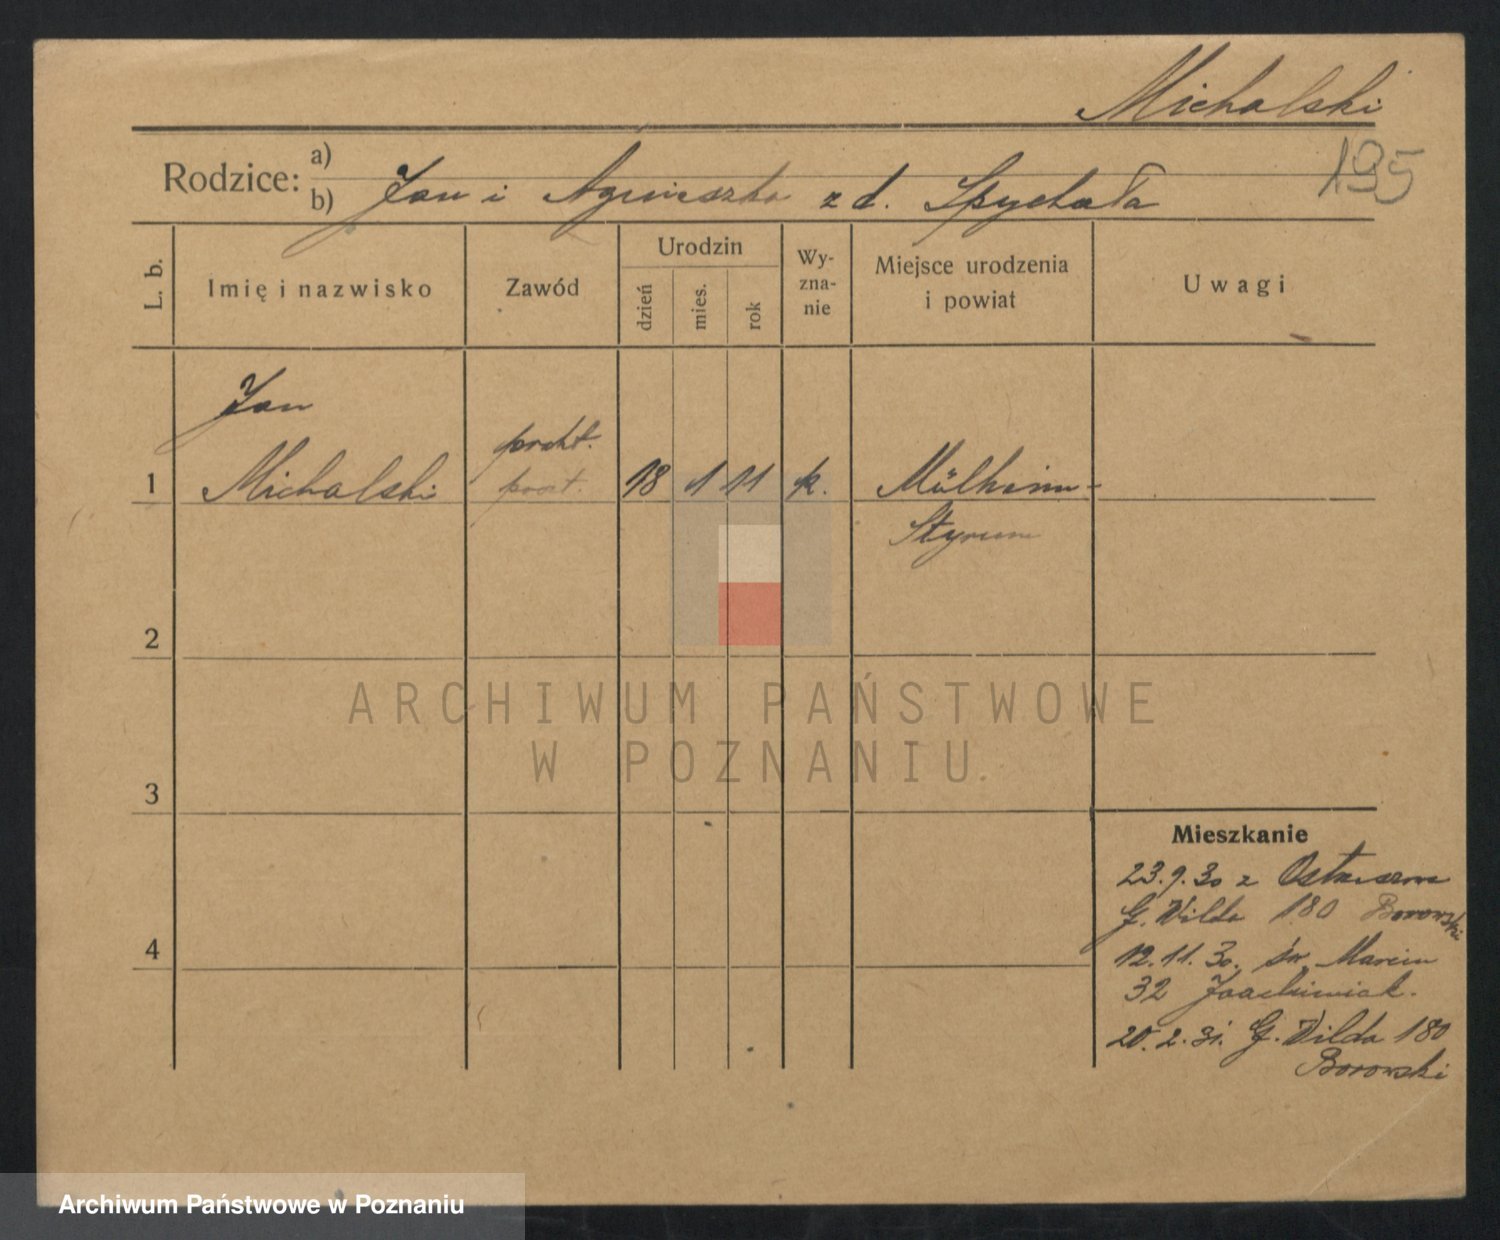 Michalski
195
Rodzice: a)
b) Jan i Agnieszka z d. Spychała
L. b.
Imię i nazwisko
Zawód
Urodzin
dzień
mies.
rok
Wy-
zna-
nie
Miejsce urodzenia
i powiat
Uwagi
Jan
prakt.
1 Michalski poczt. 18 1 11 k. Mülheim-
Styrum
2
3
4
Mieszkanie
23.9.30 z Ostrzeszowa
G. Wilda 180 Borowski
12.11.30. św. Marcin
32 Joachimiak.
20.2.31. G. Wilda 180
Borowski
ARCHIWUM PAŃSTWOWE
W POZNANIU
Archiwum Państwowe w Poznaniu